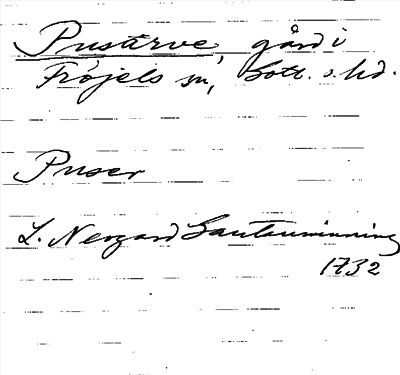 Pustarve, gård i
Fröjels sn, Gotl. s. hd.
Puser
L. Nergard Gautauminning
1732